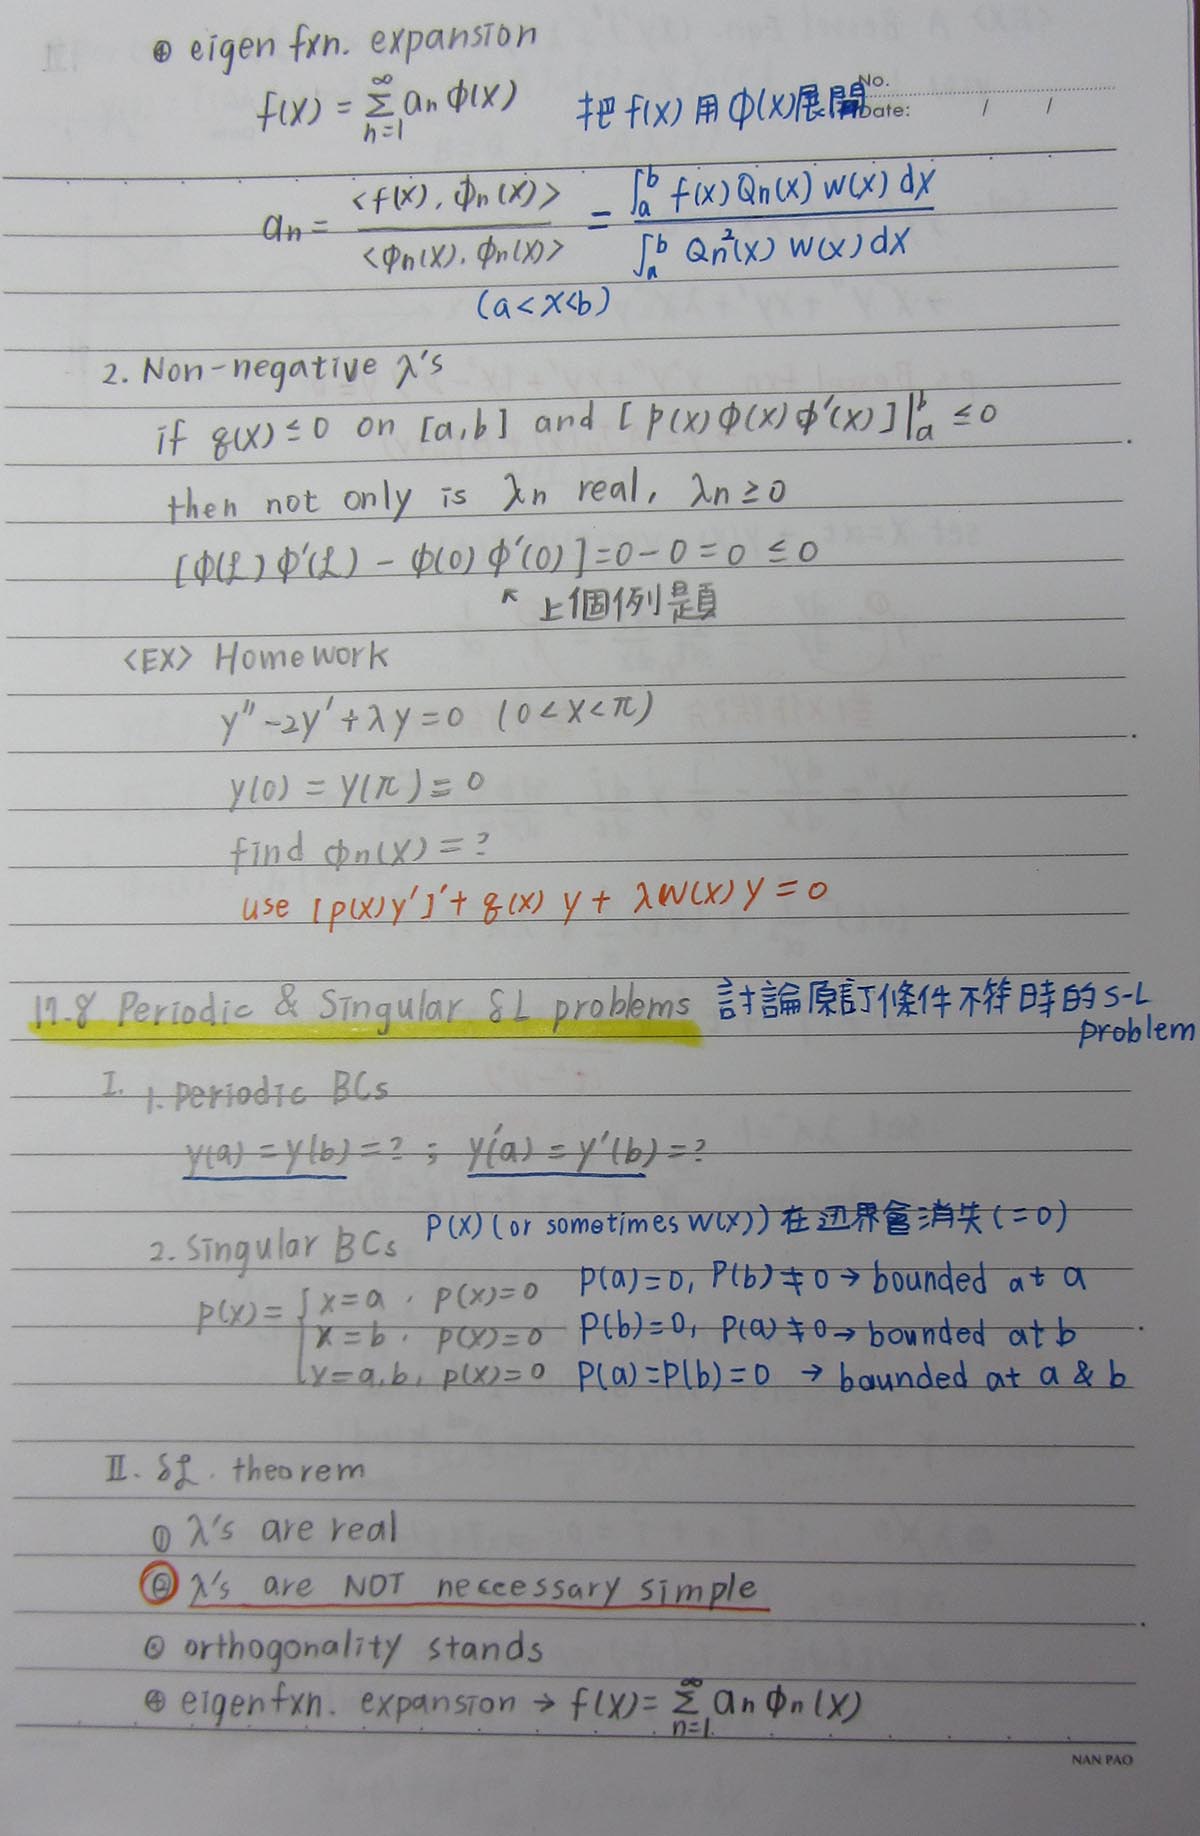 ④ eigen fxn. expansion
f(x) = ∑_{n=1}^{∞} an ϕ(x) 把 f(x) 用 ϕ(x)展開
No.
Date: / /
an = <f(x), ϕn(x)> / <ϕn(x), ϕn(x)> = ∫_a^b f(x) Qn(x) w(x) dx / ∫_a^b Qn²(x) w(x) dx
(a<x<b)
2. Non-negative λ's
if q(x) ≤ 0 on [a,b] and [p(x) ϕ(x) ϕ'(x)]|_a^b ≤ 0
then not only is λn real, λn ≥ 0
[ϕ(L) ϕ'(L) - ϕ(0) ϕ'(0)] = 0 - 0 = 0 ≤ 0
↖ 上個例題
<EX> Homework
y'' - 2y' + λy = 0 (0<x<π)
y(0) = y(π) = 0
find ϕn(x) = ?
use [p(x)y']' + q(x) y + λw(x) y = 0
17.8 Periodic & Singular SL problems 討論原訂條件不符時的 S-L
problem
I. 1. Periodic BCs
y(a) = y(b) = ? ; y'(a) = y'(b) = ?
P(x) (or sometimes w(x)) 在边界會消失 (=0)
2. Singular BCs
p(x) = { x=a, p(x)=0 P(a)=0, P(b)≠0 → bounded at a
x=b, p(x)=0 P(b)=0, P(a)≠0 → bounded at b
x=a,b, p(x)=0 P(a)=P(b)=0 → baunded at a & b
II. SL. theorem
① λ's are real
② λ's are NOT neccessary simple
③ orthogonality stands
④ eigenfxn. expansion → f(x) = ∑_{n=1}^{∞} an ϕn(x)
NAN PAO